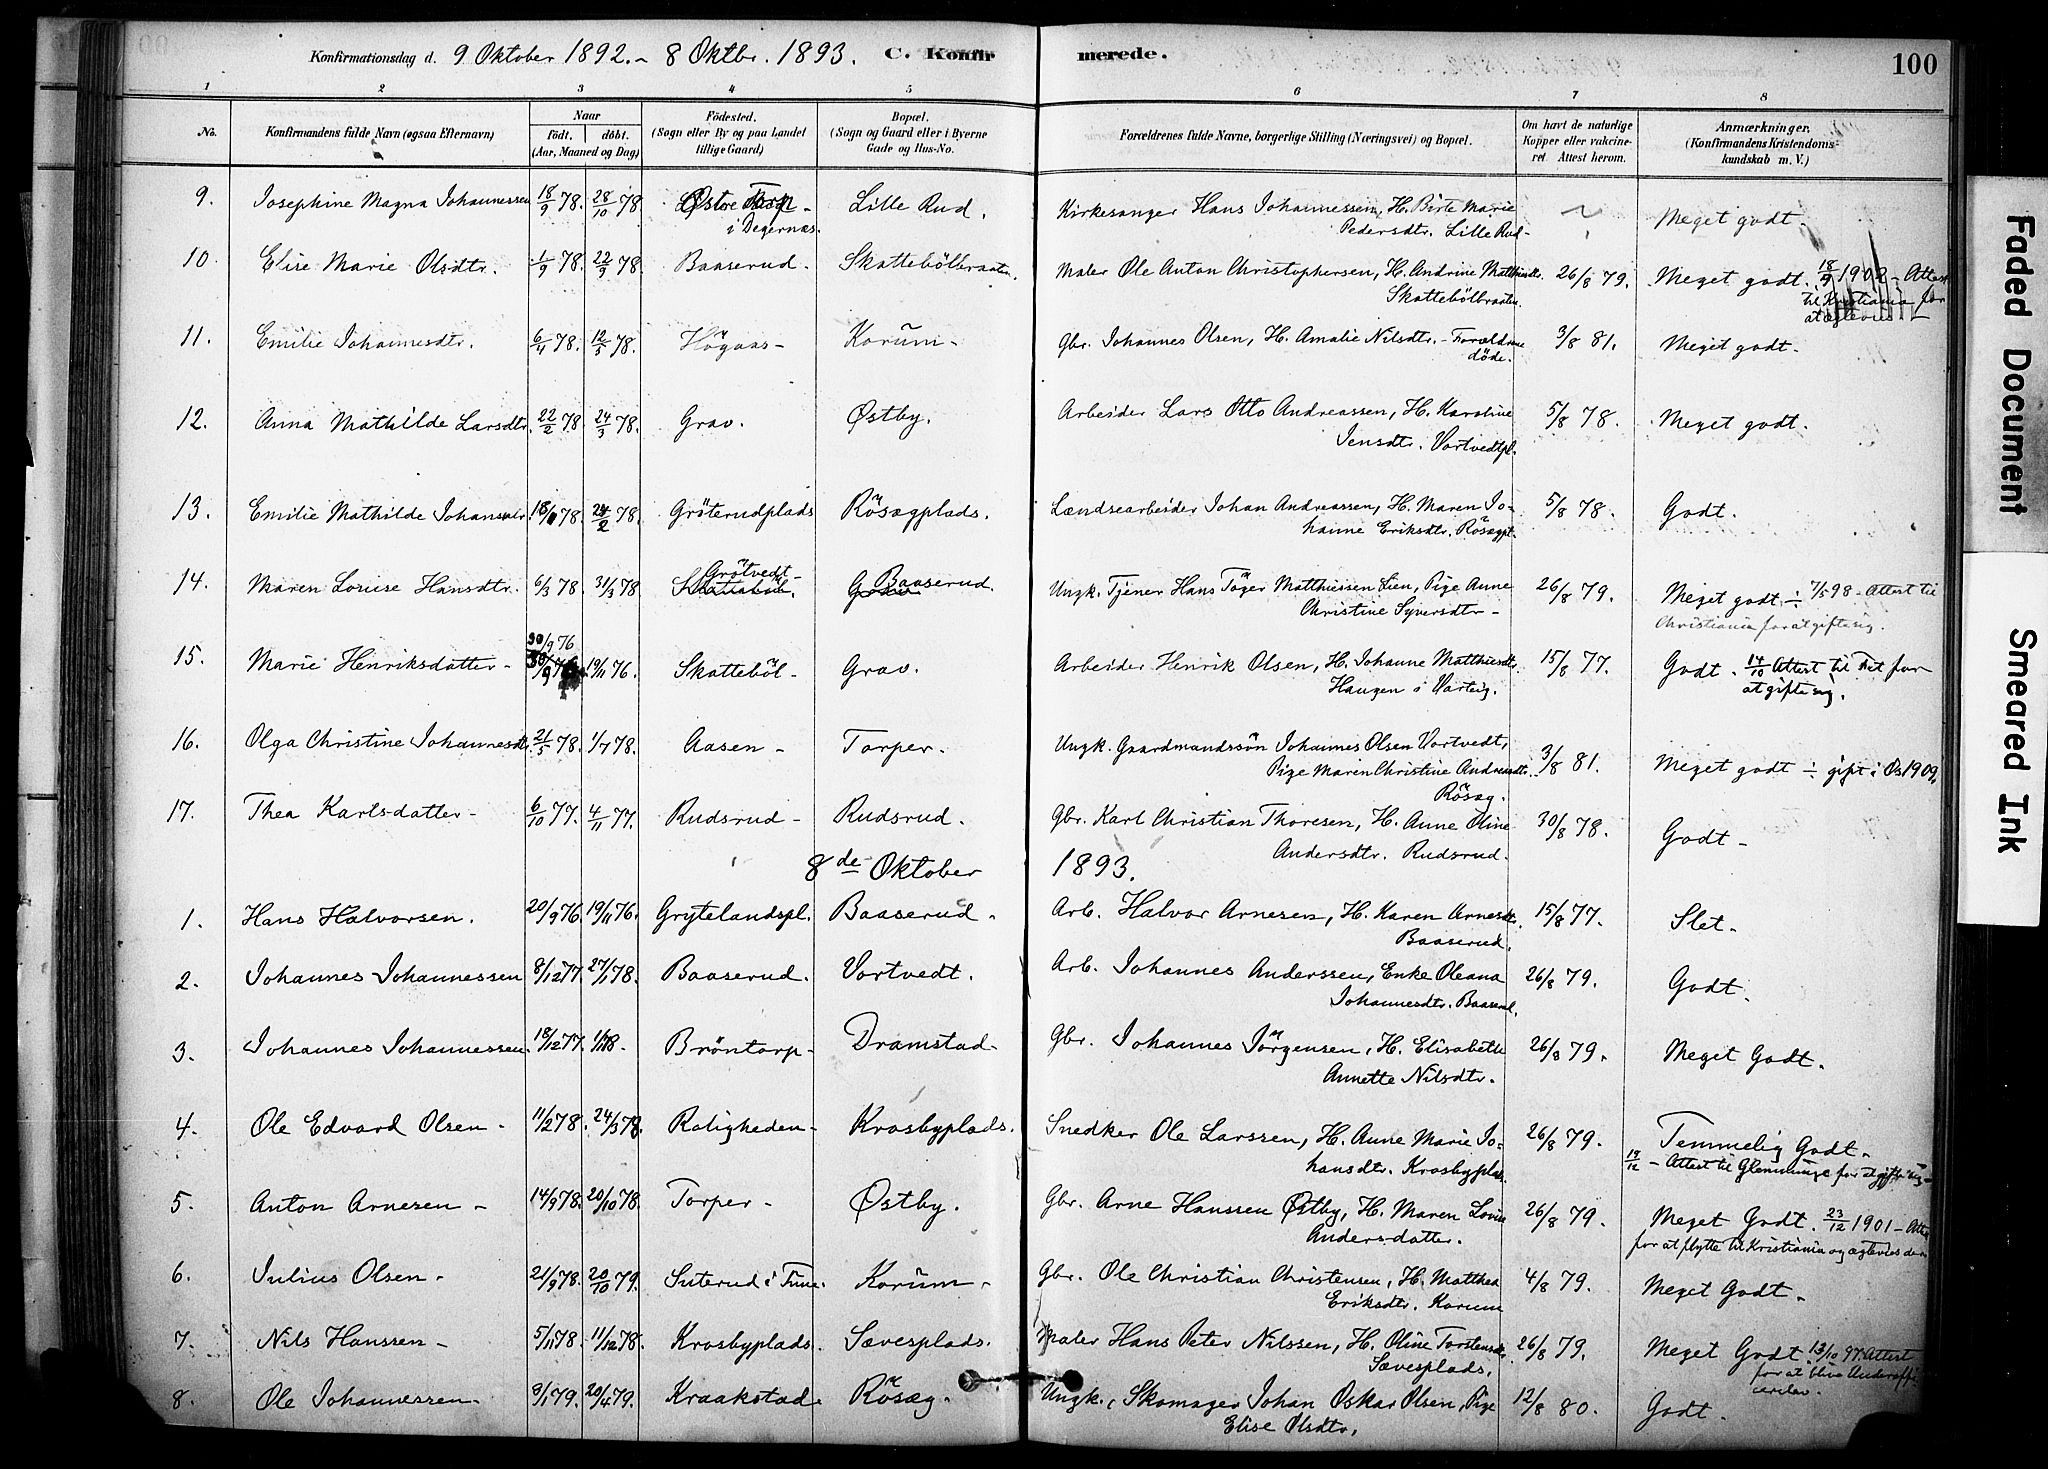 Konfirmationsdag d. 9 Oktober 1892. - 8 Oktbr. 1893. C. Konfirmerede. 100
1 2 3 4 5 6 7 8
No. Konfirmandens fulde Navn (ogsaa Efternavn) Naar født. døbt. (Aar, Maaned og Dag) Fødested. (Sogn eller By og paa Landet tillige Gaard) Bopæl. (Sogn og Gaard eller i Byerne Gade og Hus-No. Forældrenes fulde Navne, borgerlige Stilling (Næringsvei) og Bopæl. Om havt de naturlige Kopper eller vakcineret. Attest herom. Anmærkninger. (Konfirmandens Kristendomskundskab m. V.)
9. Josephine Magna Johannessen 18/9 78. 28/10 78 Østre Torp i Degernes. Lille Rud. Kirkesanger Hans Johannessen, H. Birte Marie
Pedersdtr. Lille Rud - Meget godt.
10. Elise Marie Olsdtr. 1/9 78. 22/9 78. Baaserud. Skattebölbraaten. Maler Ole Anton Christophersen, H. Andrine Matthisdtr. 26/8 79. Meget godt. 18/9 1902 - Attest
Skattebölbraaten. til Kristiania for
at ægtevies.
11. Emilie Johannesdtr. 6/4 78. 12/5 78. Högaas - Korum - Gbr. Johannes Olsen, H. Amalie Nilsdtr. - Forældrene 3/8 81. Meget godt -
döde.
12. Anna Mathilde Larsdtr. 22/2 78 24/3 78. Grav. Østby. Arbeider Lars Otto Andreassen, H. Karoline 5/8 78. Meget godt.
Jensdtr. Vortvedtpl.
13. Emilie Mathilde Johansdtr. 78. 24/2 78. Gröterudplads Rösægplads. Lændsearbeider Johan Andreassen, H. Maren Jo- 5/8 78. Godt.
hanne Eriksdtr. Rösægpl.
14. Maren Lovise Hansdtr. 6/3 78. 31/3 78 Grötvedt - Baaserud. Ungk. Tjener Hans Töger Matthiessen Lien, Pige Anne 26/8 79. Meget godt. ÷ 7/5 98 - Attest til
Christine Syversdtr - Christiania for at gifte sig.
15. Marie Henriksdatter - 30/9 76 19/11 76. Skatteböl - Grav. Arbeider Henrik Olsen, H. Johanne Matthisdtr. 15/8 77. Godt. 14/10 Attest til for
Haugen i Varteig. at gifte sig.
16. Olga Christine Johannesdtr. 21/5 78. 1/7 78. Aasen - Torper. Ungk. Gaardmandssön Johannes Olsen Vortvedt,
Pige Maren Christine Andreasdtr. 3/8 81. Meget godt ÷ gift i Os 1909.
Rösæg.
17. Thea Karlsdatter - 6/10 77. 4/11 77. Rudsrud - Rudsrud. Gbr. Karl Christian Thoresen, H. Anne Oline 30/8 78. Godt -
Andersdtr. Rudsrud.
8de Oktober 1893.
1. Hans Halvorsen. 20/9 76. 19/11 76. Grytelandspl. Baaserud - Arb. Halvor Arnesen, H. Karen Arnesdtr. 15/8 77. Slet -
Baaserud.
2. Johannes Johannessen 8/12 77. 27/1 78. Baaserud. Vortvedt. Arb. Johannes Anderssen, Enke Oleana 26/8 79. Godt.
Johannesdtr. Baaserud.
3. Johannes Johannessen. 18/12 77. Bröntorp - Dramstad - Gbr. Johannes Jörgensen, H. Elisabeth 26/8 79. Meget Godt.
Annette Nilsdtr.
4. Ole Edvard Olsen - 11/2 78. 24/3 78. Roligheden - Krosbyplads. Snedker Ole Larssen, H. Anne Marie Jo- 26/8 79. Temmelig Godt -
hansdtr. Krosbyplads. 19/12 - Attest til Glemminge for at gifte sig -
5. Anton Arnesen - 14/9 78. 20/10 78. Torper - Østby. Gbr. Arne Hanssen Østby, H. Maren Lovise 26/8 79. Meget Godt. 23/12 1901 - Attest
Andersdatter. for at flytte til Kristiania og ægtevies der
6. Julius Olsen - 21/9 78. 20/10 79. Suterud i Tune. Korum - Gbr. Ole Christian Christensen, H. Matthea 4/8 79. Meget Godt -
Eriksdtr. Korum
7. Nils Hanssen - 5/11 78. 11/12 78. Krosbyplads. Sævesplads. Maler Hans Peter Nilssen, H. Oline Torstensdtr. 26/8 79. Meget Godt. 13/10 97. Attest
Sævesplads. for at blive Underoffi-
cerelev.
8. Ole Johannessen - 3/1 79. 20/4 79. Kraakstad. Rösæg. Ungk., Skomager Johan Oskar Olsen, Pige 12/8 80. Godt.
Elise Olsdtr.
Faded Document
Smeared Ink